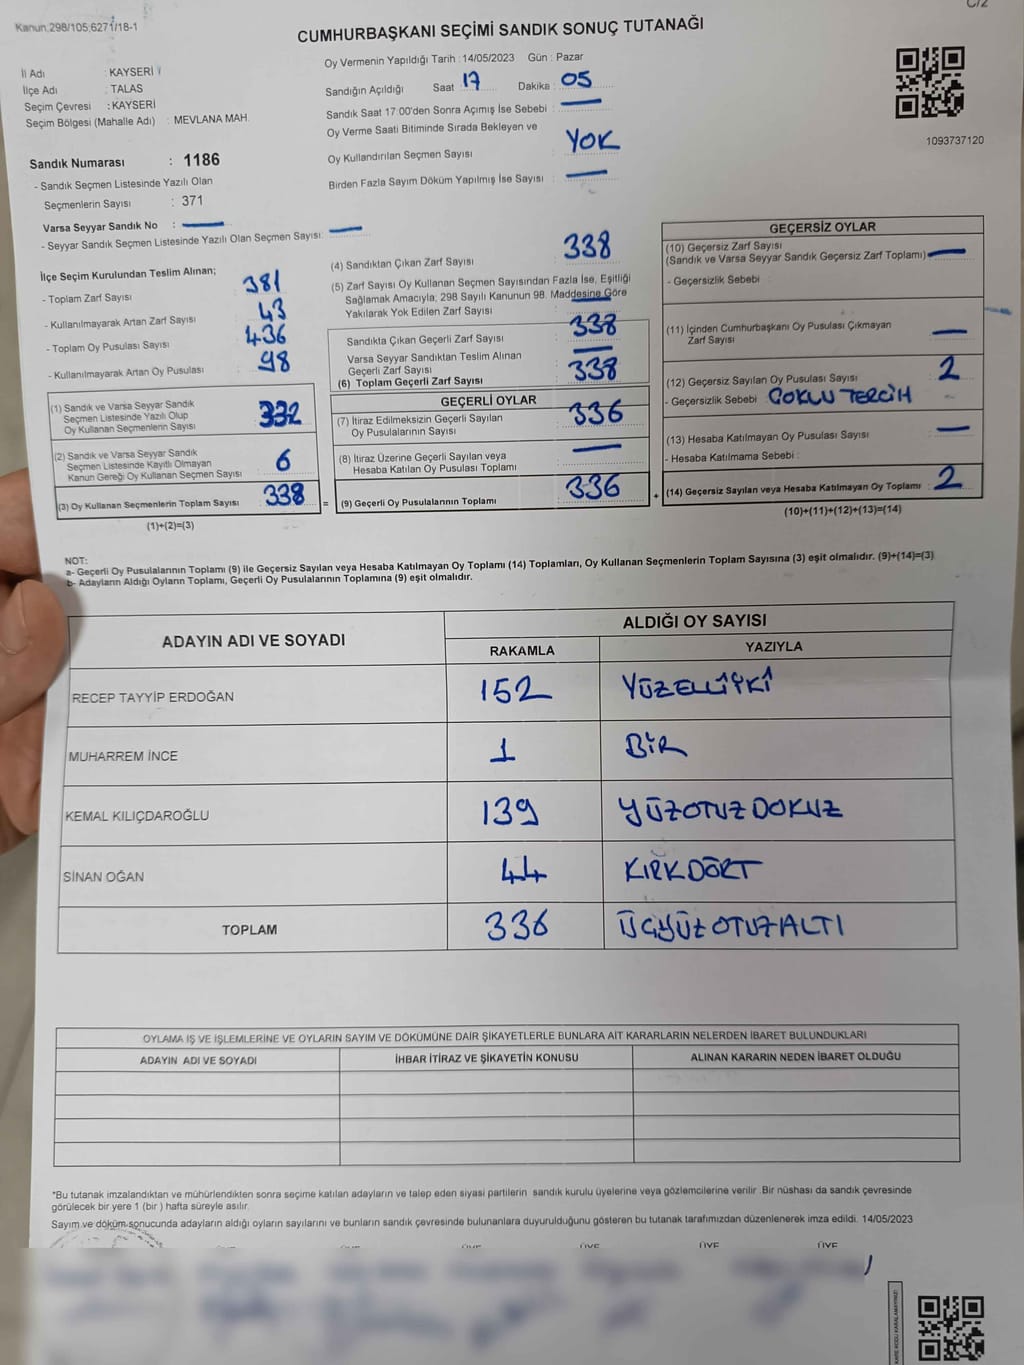 C/2
Kanun.298/105,6271/18-1
CUMHURBAŞKANI SEÇİMİ SANDIK SONUÇ TUTANAĞI
İl Adı : KAYSERİ
İlçe Adı : TALAS
Seçim Çevresi : KAYSERİ
Seçim Bölgesi (Mahalle Adı) : MEVLANA MAH.
Sandık Numarası : 1186
- Sandık Seçmen Listesinde Yazılı Olan
Seçmenlerin Sayısı : 371
Varsa Seyyar Sandık No :
- Seyyar Sandık Seçmen Listesinde Yazılı Olan Seçmen Sayısı:
Oy Vermenin Yapıldığı Tarih : 14/05/2023 Gün : Pazar
Sandığın Açıldığı Saat 17 Dakika : 05
Sandık Saat 17:00'den Sonra Açımış İse Sebebi :
Oy Verme Saati Bitiminde Sırada Bekleyen ve
Oy Kullandırılan Seçmen Sayısı : YOK
Birden Fazla Sayım Döküm Yapılmış İse Sayısı :
1093737120
İlçe Seçim Kurulundan Teslim Alınan;
- Toplam Zarf Sayısı 381
- Kullanılmayarak Artan Zarf Sayısı 43
- Toplam Oy Pusulası Sayısı 436
- Kullanılmayarak Artan Oy Pusulası 98
(1) Sandık ve Varsa Seyyar Sandık
Seçmen Listesinde Yazılı Olup
Oy Kullanan Seçmenlerin Sayısı 332
(2) Sandık ve Varsa Seyyar Sandık
Seçmen Listesinde Kayıtlı Olmayan
Kanun Gereği Oy Kullanan Seçmen Sayısı 6
(3) Oy Kullanan Seçmenlerin Toplam Sayısı 338 =
(1)+(2)=(3)
(4) Sandıktan Çıkan Zarf Sayısı 338
(5) Zarf Sayısı Oy Kullanan Seçmen Sayısından Fazla İse, Eşitliği
Sağlamak Amacıyla, 298 Sayılı Kanunun 98. Maddesine Göre
Yakılarak Yok Edilen Zarf Sayısı
Sandıkta Çıkan Geçerli Zarf Sayısı 338
Varsa Seyyar Sandıktan Teslim Alınan
Geçerli Zarf Sayısı
(6) Toplam Geçerli Zarf Sayısı 338
GEÇERLİ OYLAR
(7) İtiraz Edilmeksizin Geçerli Sayılan
Oy Pusulalarının Sayısı 336
(8) İtiraz Üzerine Geçerli Sayılan veya
Hesaba Katılan Oy Pusulası Toplamı
(9) Geçerli Oy Pusulalarının Toplamı 336 +
GEÇERSİZ OYLAR
(10) Geçersiz Zarf Sayısı
(Sandık ve Varsa Seyyar Sandık Geçersiz Zarf Toplamı)
- Geçersizlik Sebebi :
(11) İçinden Cumhurbaşkanı Oy Pusulası Çıkmayan
Zarf Sayısı
(12) Geçersiz Sayılan Oy Pusulası Sayısı : 2
- Geçersizlik Sebebi : ÇOKLU TERCİH
(13) Hesaba Katılmayan Oy Pusulası Sayısı :
- Hesaba Katılmama Sebebi :
(14) Geçersiz Sayılan veya Hesaba Katılmayan Oy Toplamı : 2
(10)+(11)+(12)+(13)=(14)
NOT:
a- Geçerli Oy Pusulalarının Toplamı (9) ile Geçersiz Sayılan veya Hesaba Katılmayan Oy Toplamı (14) Toplamları, Oy Kullanan Seçmenlerin Toplam Sayısına (3) eşit olmalıdır. (9)+(14)=(3)
b- Adayların Aldığı Oyların Toplamı, Geçerli Oy Pusulalarının Toplamına (9) eşit olmalıdır.
ADAYIN ADI VE SOYADI ALDIĞI OY SAYISI
RAKAMLA YAZIYLA
RECEP TAYYİP ERDOĞAN 152 YÜZELLİİKİ
MUHARREM İNCE 1 BİR
KEMAL KILIÇDAROĞLU 139 YÜZOTUZ DOKUZ
SİNAN OĞAN 44 KIRKDÖRT
TOPLAM 336 ÜÇYÜZOTUZALTI
OYLAMA İŞ VE İŞLEMLERİNE VE OYLARIN SAYIM VE DÖKÜMÜNE DAİR ŞİKAYETLERLE BUNLARA AİT KARARLARIN NELERDEN İBARET BULUNDUKLARI
ADAYIN ADI VE SOYADI İHBAR İTİRAZ VE ŞİKAYETİN KONUSU ALINAN KARARIN NEDEN İBARET OLDUĞU
*Bu tutanak imzalandıktan ve mühürlendikten sonra seçime katılan adayların ve talep eden siyasi partilerin sandık kurulu üyelerine veya gözlemcilerine verilir. Bir nüshası da sandık çevresinde
görülecek bir yere 1 (bir ) hafta süreyle asılır.
Sayım ve döküm sonucunda adayların aldığı oyların sayılarını ve bunların sandık çevresinde bulunanlara duyurulduğunu gösteren bu tutanak tarafımızdan düzenlenerek imza edildi. 14/05/2023
ÜYE ÜYE ÜYE ÜYE ÜYE